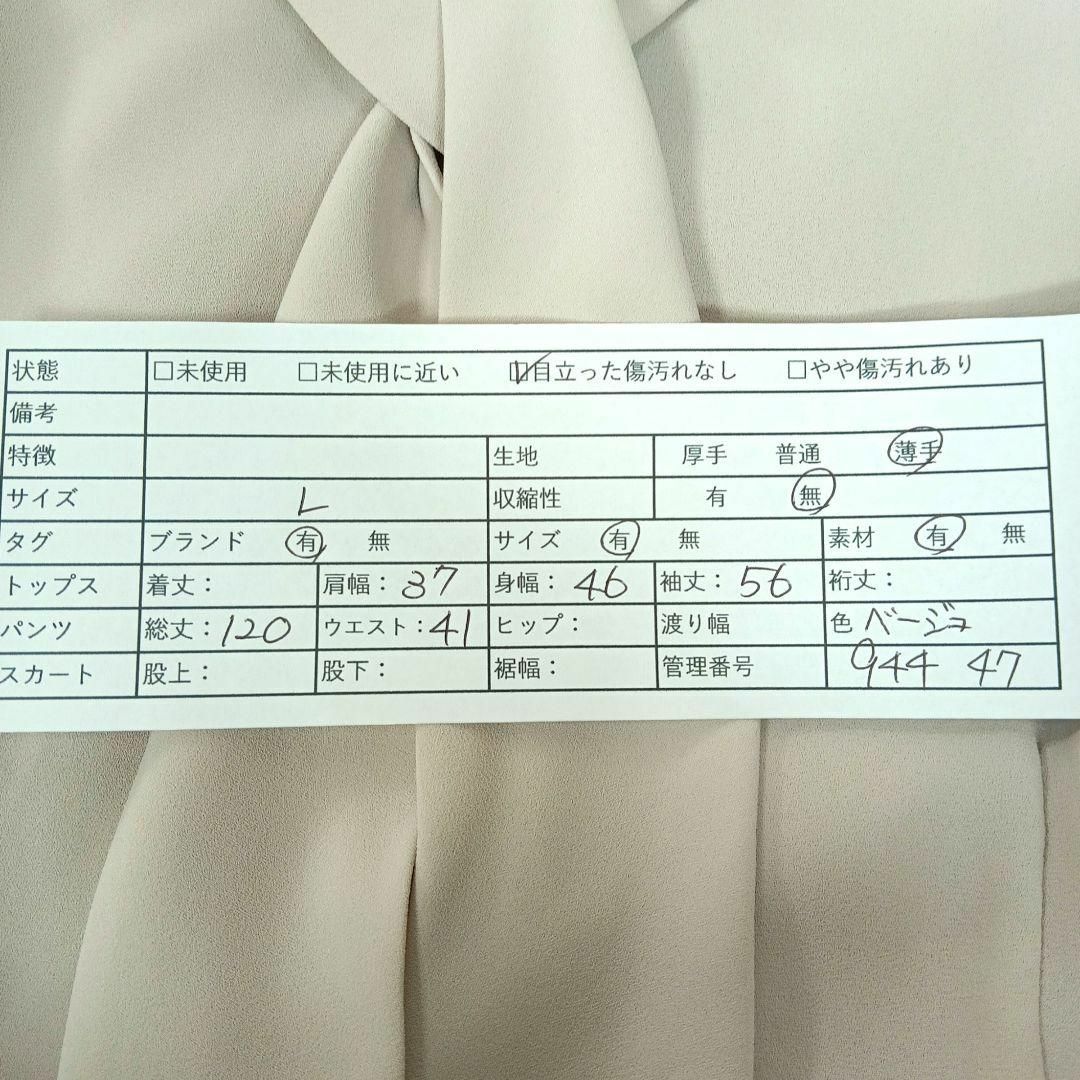 状態 □未使用 □未使用に近い ☑目立った傷汚れなし □やや傷汚れあり
備考
特徴 生地 厚手 普通 薄手
サイズ L 収縮性 有 無
タグ ブランド 有 無 サイズ 有 無 素材 有 無
トップス 着丈： 肩幅：37 身幅：46 袖丈：56 裄丈：
パンツ 総丈：120 ウエスト：41 ヒップ： 渡り幅 色 ベージュ
スカート 股上： 股下： 裾幅： 管理番号 944 47